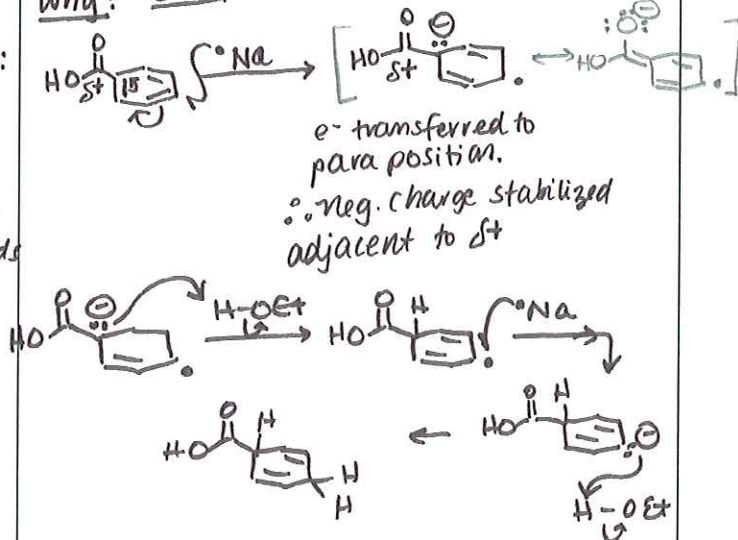 Why:
:
O
HO
δ+
•Na
O
⊖
HO
δ+
↔
:O: ⊖
HO
e- transferred to
para position.
∴ neg. charge stabilized
adjacent to δ+
ds
O
⊖
HO
H-OEt
O H
HO
•Na
O H
HO
⊖
H-OEt
←
O
H
HO
H
H